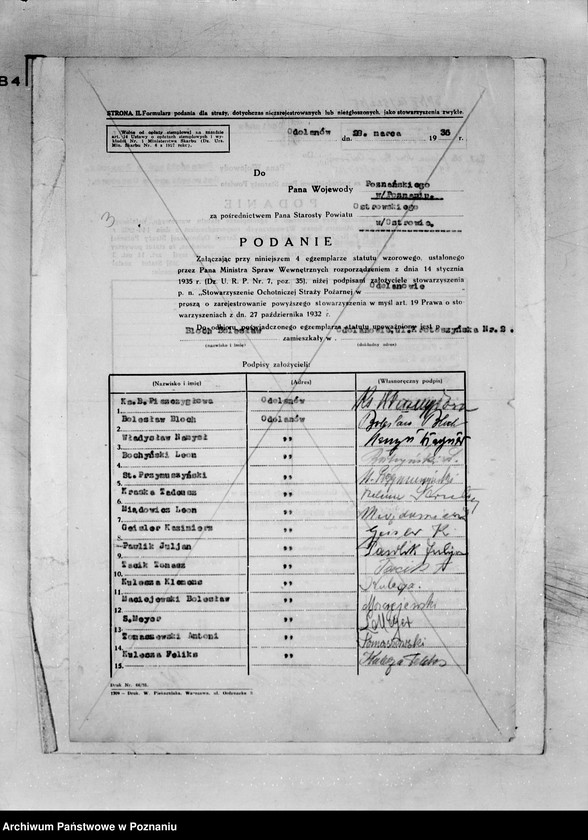 B4
STRONA II. Formularz podania dla straży, dotychczas niezarejestrowanych lub niezgłoszonych, jako stowarzyszenia zwykłe.
(Wolne od opłaty stemplowej na zasadzie
art. 14 Ustawy o opłatach stemplowych i wy-
Min. Skarbu Nr. 6 z 1927 roku).
Odolanów dn. 28. marca 1936 r.
3
Do
Pana Wojewody Poznańskiego
w/Poznaniu.
Ostrowskiego
za pośrednictwem Pana Starosty Powiatu
w/Ostrowie.
PODANIE
Załączając przy niniejszem 4 egzemplarze statutu wzorowego, ustalonego
przez Pana Ministra Spraw Wewnętrznych rozporządzeniem z dnia 14 stycznia
1935 r. (Dz. U. R. P. Nr. 7, poz. 35), niżej podpisani założyciele stowarzyszenia
p. n. „Stowarzyszenie Ochotniczej Straży Pożarnej w Odolanowie
proszą o zarejestrowanie powyższego stowarzyszenia w myśl art. 19 Prawa o sto-
warzyszeniach z dn. 27 października 1932 r.
Do odbioru poświadczonego egzemplarza statutu upoważniony jest p.
Bloch Bolesław zamieszkały w Odolanowie, Nr. 2.
(nazwisko i imię) (dokładny adres)
Podpisy założycieli:
(Nazwisko i imię) (Adres) (Własnoręczny podpis)
Ks. B. Piszczygłowa Odolanów
1.
Bolesław Bloch Odolanów Bolesław Bloch
2.
Władysław Namysł ,,
3.
Bochyński Leon ,,
4.
St. Przymuszyński ,, St. Przymuszyński
5.
Kraska Tadeusz ,,
6.
Miądowicz Leon ,,
7.
Geisler Kazimierz ,, Geisler K.
8.
Pawlik Juljan ,, Pawlik Juljan
9.
Tacik Tomasz ,, Tacik T
10.
Kulecza Klemens ,,
11.
Maciejewski Bolesław ,, Maciejewski
12.
S. Meyer ,, S. Meyer
13.
Tomaszewski Antoni ,, Tomaszewski
14.
Kulecza Feliks ,,
15.
Druk Nr. 46/35.
Druk. W. Piekarniaka, Warszawa, ul. Ordynacka 3
Archiwum Państwowe w Poznaniu